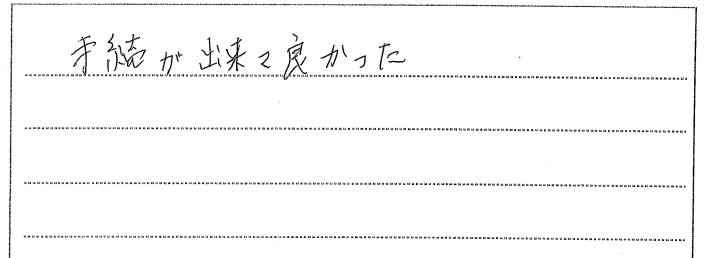 手続が出来て良かった